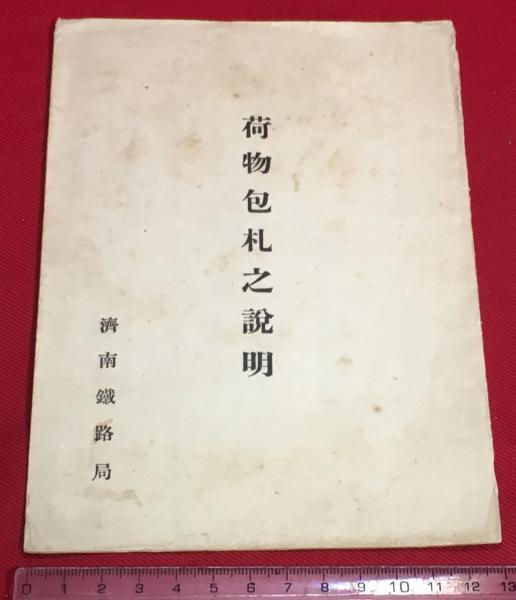 荷物包札之說明
濟南鐵路局
0 1 2 3 4 5 6 7 8 9 10 11 12 13